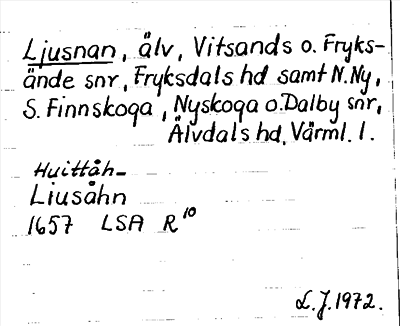 Ljusnan, älv, Vitsands o. Fryks-
ände snr, Fryksdals hd samt N. Ny,
S. Finnskoga, Nyskoga o. Dalby snr,
Älvdals hd, Värml. l.
Huittåh-
Liusåhn
1657 LSA R10
L.J. 1972.